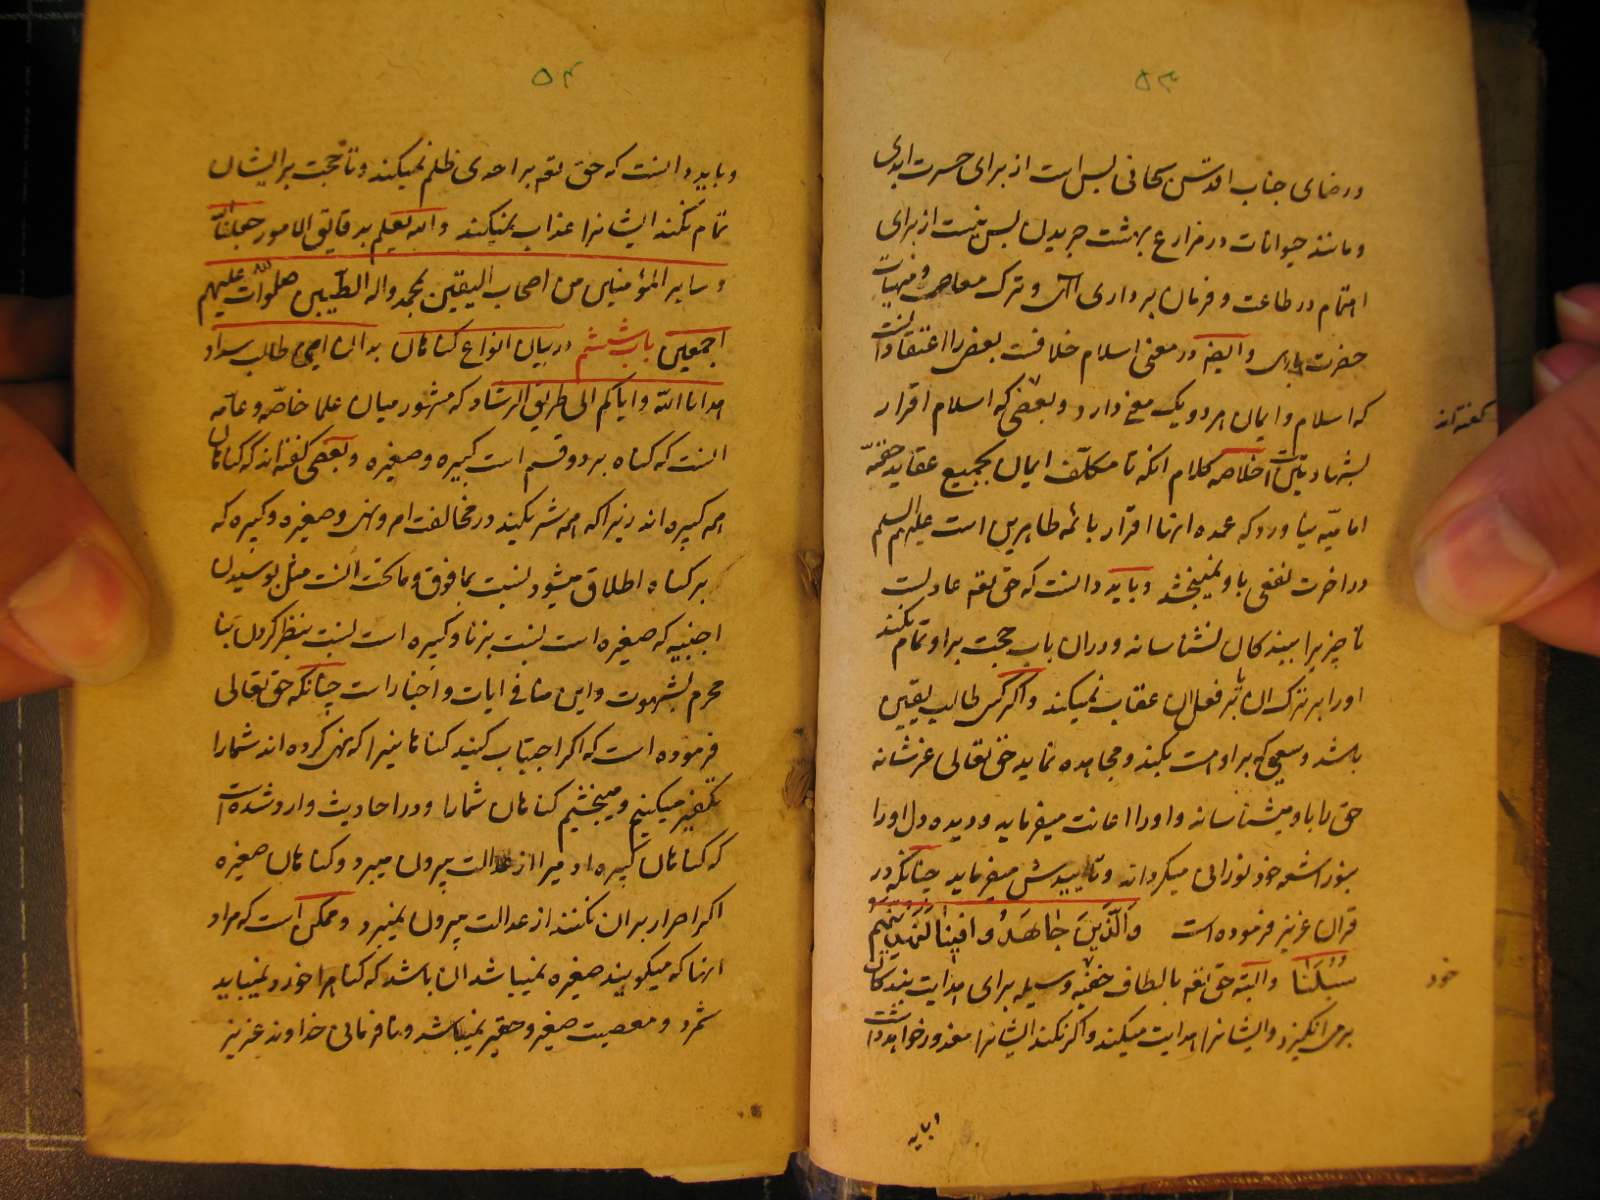 ۵۳
ورضای جناب اقدس سبحانی بس است از برای حسرت ابدی
ومانند حیوانات در مزارع بهشت چریدن بس نیست از برای
اهتمام در طاعت و فرمان برداری الٓهی و ترک معاصی و منهیات
حضرت باری وایضه در معنی اسلام خلافست بعض را اعتقاد انست
که اسلام و ایمان هر دو یک معنی دارد و بعضی که اسلام اقرار
کفته اند
بشهادتین است خلاصه کلام انکه تا مکلّف ایمان بجمیع عقاید حقّهٔ
امامیّه نیاورد که عمده انها اقرار بائمه طاهرین است علیهم السلم
در اخرت نفعی باو نمیبخشد وباید دانست که حق تعه عادلست
تا چیزیرا ببندکان نشناساند و در ان باب حجت بر او تمام نکند
او را بر ترک ان یا بر فعل ان عقاب نمیکند واکر کسی طالب یقین
باشد وسعیی که بر او است بکند و مجاهده نماید حق تعالی عزشانه
حق را باو میشناساند و او را اعانت میفرماید و دیده دل او را
بنور اشعه خود نورانی میکرداند وتاییدش میفرماید چنانکه در
قران عزیز فرموده است وَالَّذینَ جاهَدُوا فینا لَنَهْدِیَنَّهُم
سُبُلَنا والبته حق تعه بالطاف خفیّه وسیله برای هدایت بندکان
خود
بر می انکیزد وایشانرا هدایت میکند واکر نکند ایشانرا معذور خواهد داشت
وباید
۵۴
وباید دانست که حق تعه بر احدی ظلم نمیکند و تا حجت بر ایشان
تمام نکند ایشانرا عذاب نمیکند والله یعلم بدقایق الامور جعلنا الله
وسایر المؤمنین من اصحاب الیقین بمحمد واله الطّیبین صلوات الله علیهم
اجمعین باب ششم در بیان انواع کناهان بدان ای طالب سداد
هدانا الله وایاکم الی طریق الرشاد که مشهور میان علما خاصّه و عامّه
انست که کناه بر دو قسم است کبیره و صغیره وبعضی کفته اند که کناهان
همه کبیره اند زیرا که همه شریکند در مخالفت امر و نهی و صغیره و کبیره که
بر کناه اطلاق میشود نسبت بما فوق وماتحت انست مثل بوسیدن
اجنبیه که صغیره است نسبت بزنا و کبیره است نسبت بنظر کردن بنا
محرم بشهوت واین منافی ایات و اخبار است چنانکه حق تعالی
فرموده است که اکر اجتناب کنید کناهانیرا که نهی کرده اند شما را
تکفیر میکنیم ومیبخشیم کناهان شما را و در احادیث وارد شده است
که کناهان کبیره ادمیرا از عدالت بیرون میبرد و کناهان صغیره
اکر اصرار بر ان نکنند از عدالت بیرون نمیبرد وممکن است که مراد
انها که میکویند صغیره نمیباشد ان باشد که کناه را خورد نمیباید
شمرد و معصیت صغیر و حقیر نمیباشد و نافرمانی خداوند عزیز